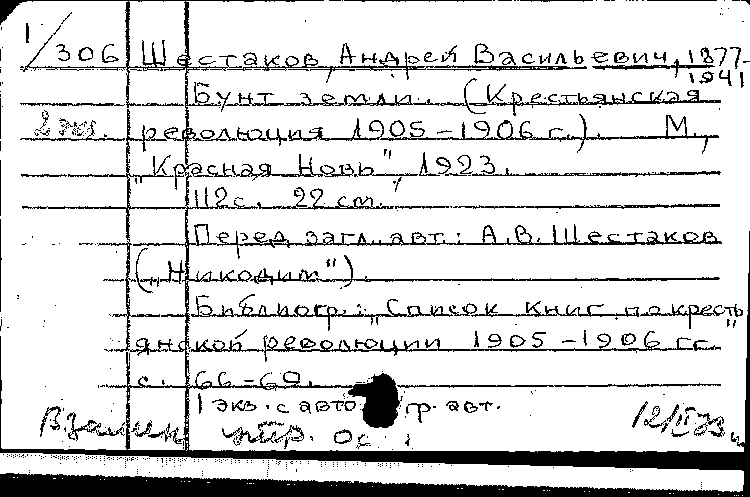 1/306 Шестаков, Андрей Васильевич, 1877-
1941
Бунт земли. (Крестьянская
2 экз. революция 1905-1906 г.). М.,
"Красная Новь", 1923.
112 с. 22 см.
Перед загл. авт.: А.В. Шестаков
("Никодим").
Библиогр.: "Список книг по кресть
янской революции 1905-1906 гг."
с. 66-69.
1 экз. с авто гр. авт.
Взамен